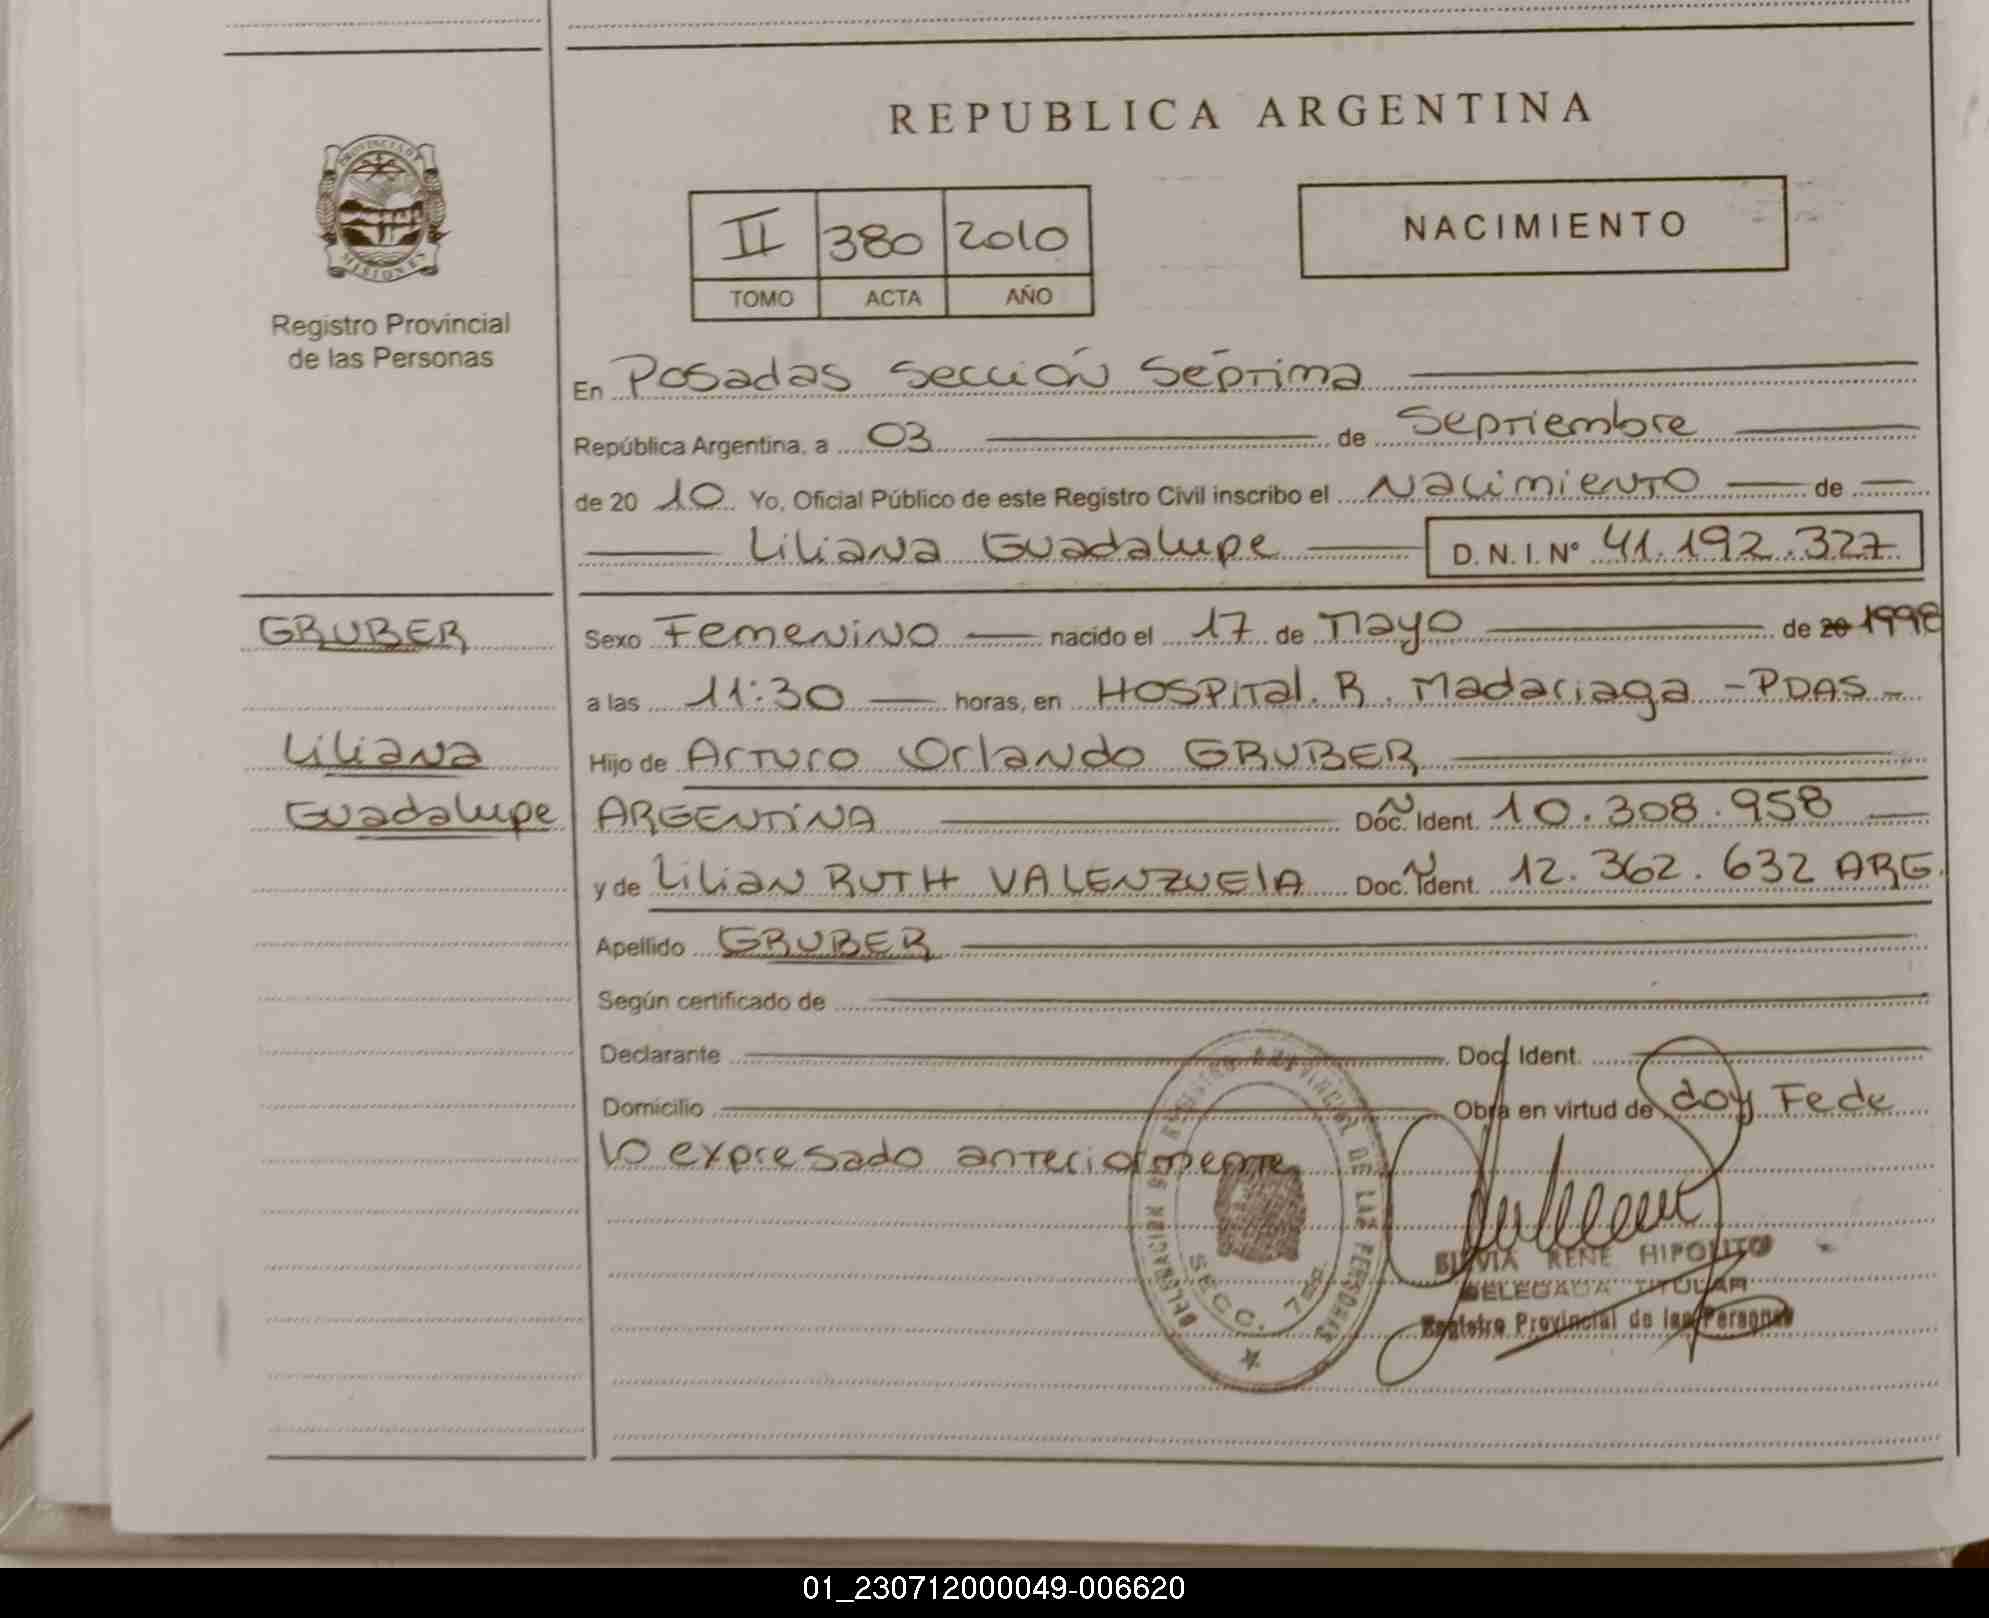 REPUBLICA ARGENTINA
PROVINCIA DE
MISIONES
Registro Provincial
de las Personas
II 380 2010
TOMO ACTA AÑO
NACIMIENTO
En Posadas Sección Séptima
República Argentina, a 03 de Septiembre
de 20 10 Yo, Oficial Público de este Registro Civil inscribo el Nacimiento de
Liliana Guadalupe D. N. I. N° 41.192.327
GRUBER
Sexo Femenino nacido el 17 de Mayo de 20 1998
a las 11:30 horas, en HOSPITAL. R. Madariaga - PDAS -
Liliana
Hijo de Arturo Orlando GRUBER
Guadalupe
ARGENTINA Doc. Ident. 10.308.958
y de Lilian RUTH VALENZUELA Doc. Ident. 12.362.632 ARG.
Apellido GRUBER
Según certificado de
Declarante Doc. Ident.
Domicilio Obra en virtud de doy Fe de
lo expresado anteriormente
REGISTRO PROVINCIAL DE LAS PERSONAS
SECC. 7ma.
SILVIA RENE HIPOLITO
DELEGADA TITULAR
Registro Provincial de las Personas
01_230712000049-006620